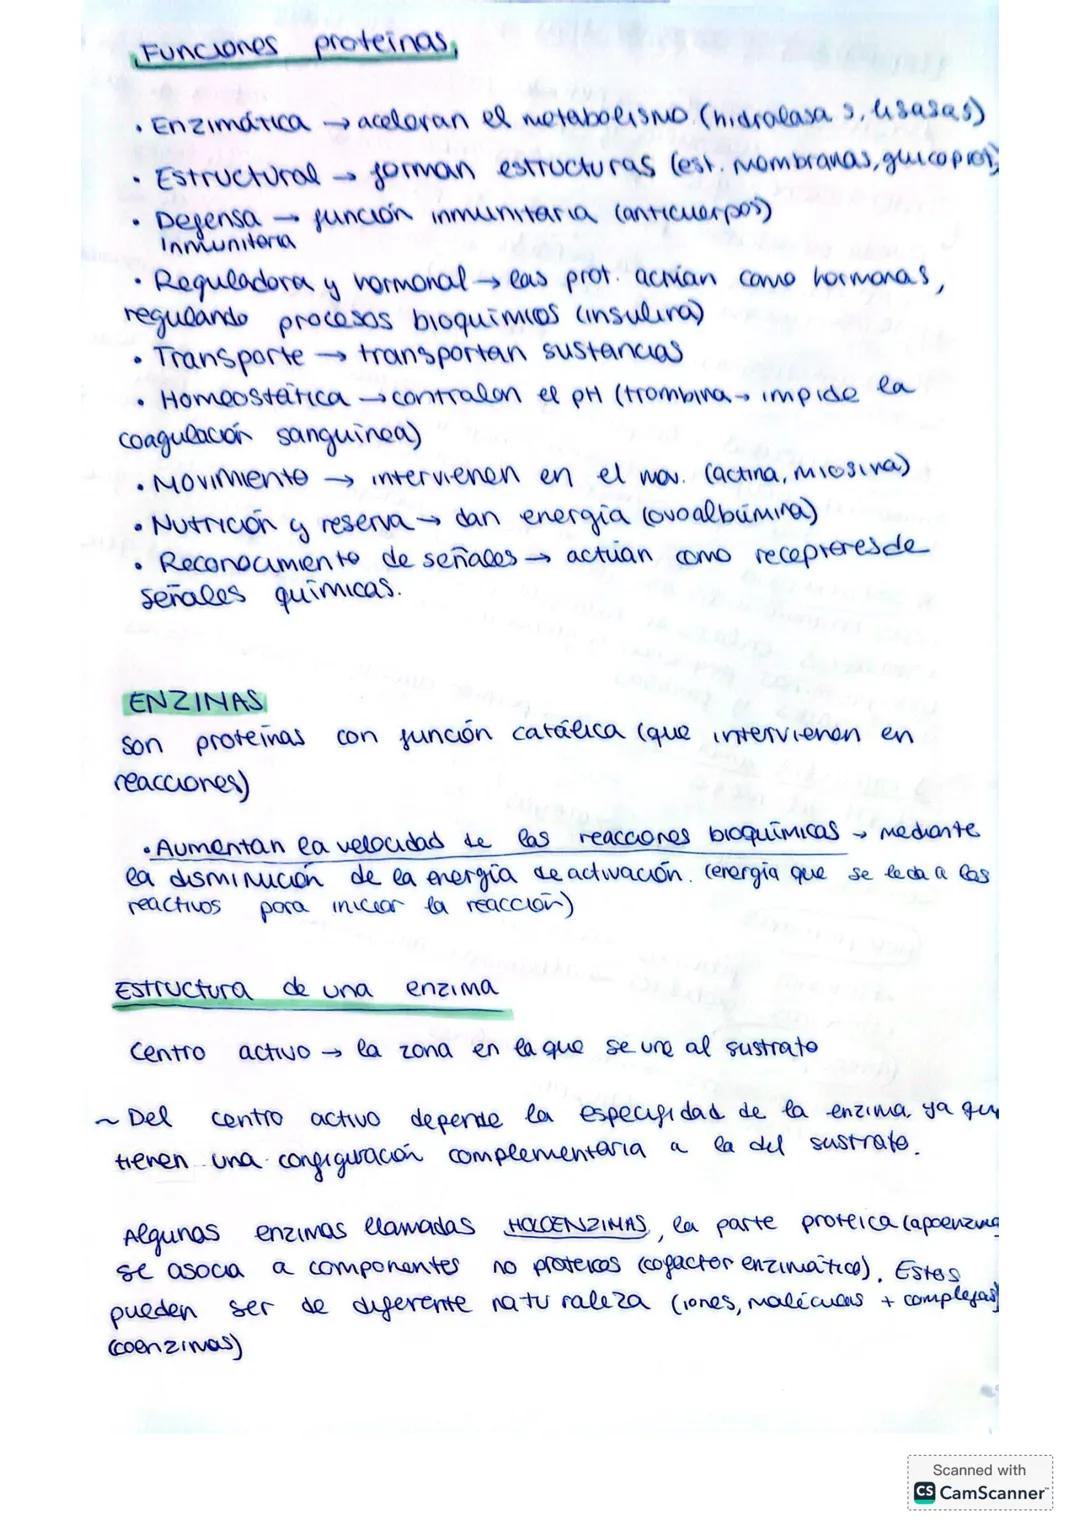 Funciones proteínas,
• Enzimática → aceleran el metabolismo (hidrolasas, liasas)
• Estructural → forman estructuras (est. membranas, glucoprot)
• Defensa → función inmunitaria (anticuerpos)
Inmunitaria
• Reguladora y hormonal → las prot. actúan como hormonas,
regulando procesos bioquímicos (insulina)
• Transporte → transportan sustancias
• Homeostática → controlan el pH (trombina → impide la
coagulación sanguínea)
• Movimiento → intervienen en el mov. (actina, miosina)
• Nutrición y reserva → dan energía (ovoalbúmina)
• Reconocimiento de señales → actúan como receptores de
señales químicas.
ENZIMAS
son proteínas con función catálica (que intervienen en
reacciones)
• Aumentan la velocidad de las reacciones bioquímicas → mediante
la disminución de la energía de activación. (energía que se le da a los
reactivos para iniciar la reacción)
Estructura de una enzima
Centro activo → la zona en la que se une al sustrato
~ Del centro activo depende la especifidad de la enzima ya que
tienen una configuración complementaria a la del sustrato.
Algunas enzimas llamadas HOLOENZIMAS, la parte proteica (apoenzima
se asocia a componentes no proteicos (cofactor enzimático). Estos
pueden ser de diferente naturaleza (iones, moléculas + complejas)
(coenzimas)
Scanned with
CS CamScanner